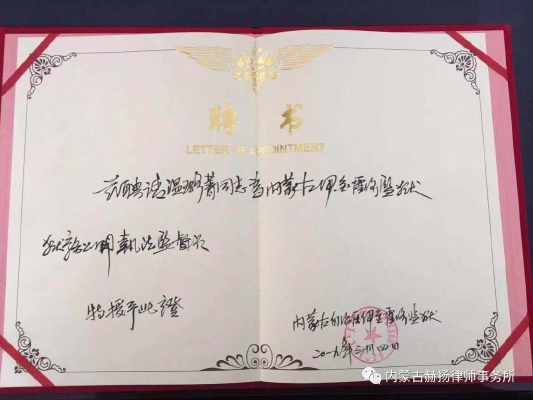 聘 书
LETTER OF APPOINTMENT
兹聘请温 同志为内蒙古伊金霍洛监狱
狱务公开执法监督员
特授予此證
内蒙古自治区伊金霍洛监狱
二〇一九年三月四日
内蒙古赫扬律师事务所